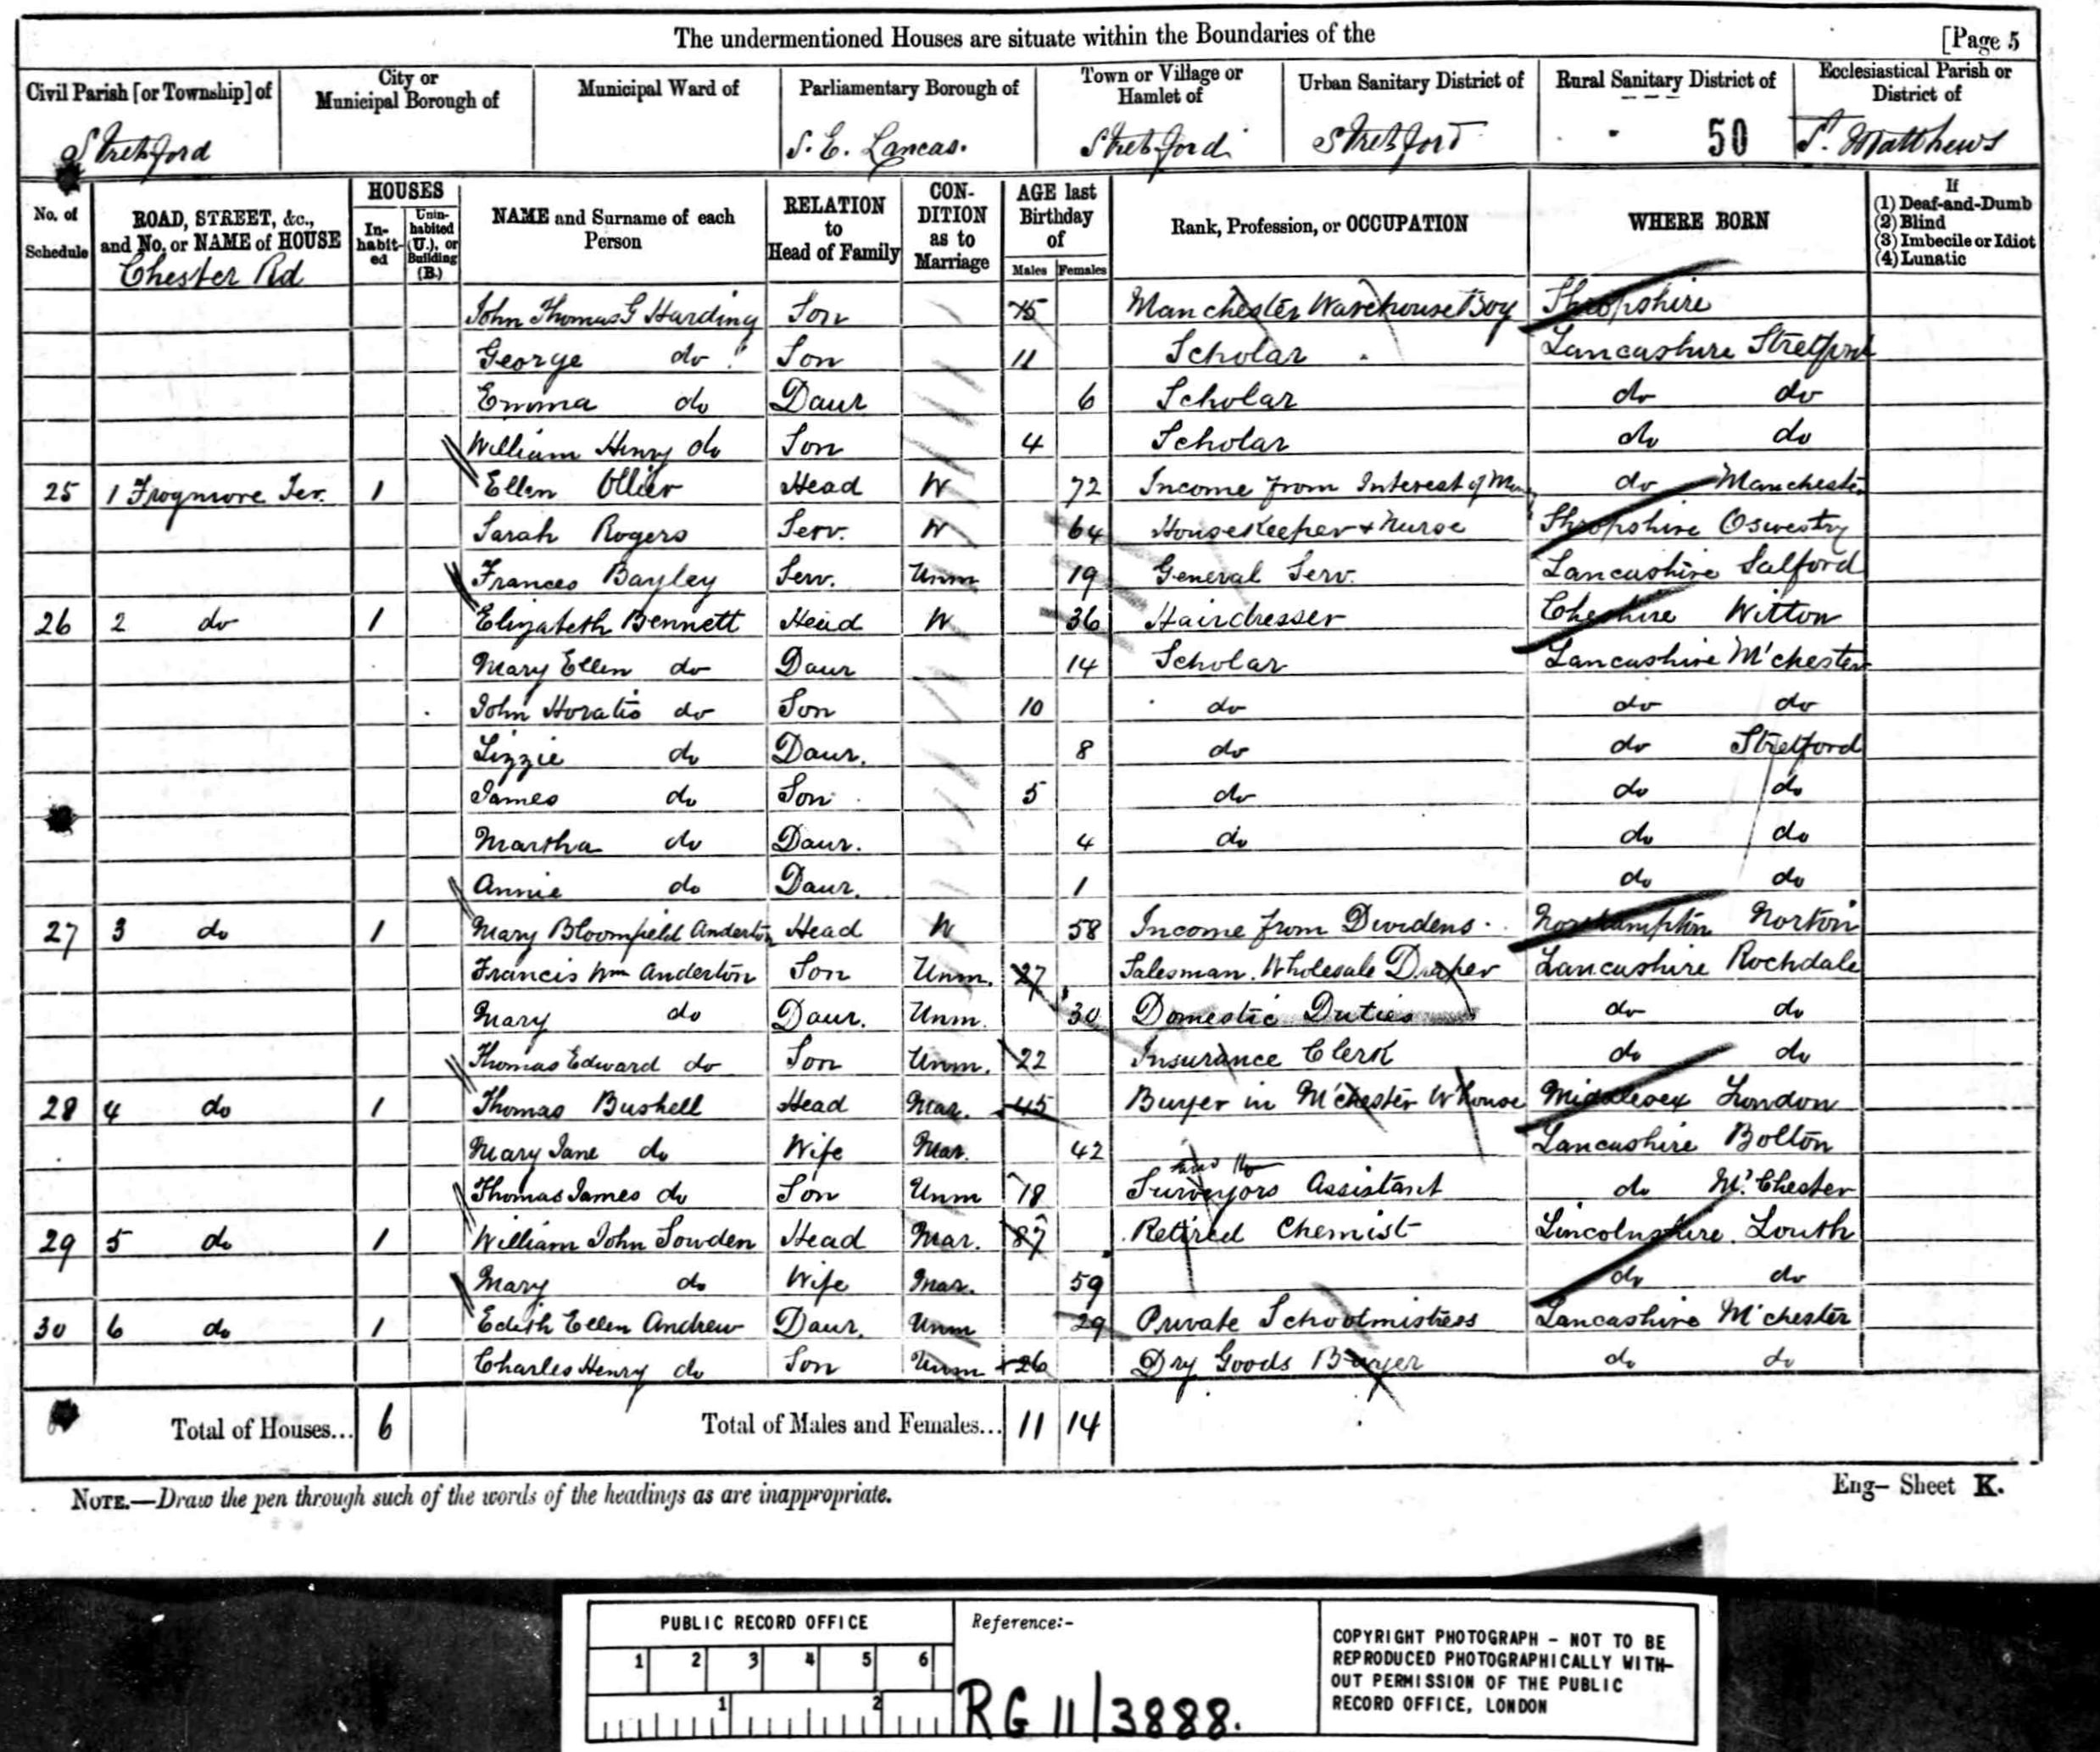 The undermentioned Houses are situate within the Boundaries of the [Page 5
Civil Parish [or Township] of City or Municipal Borough of Municipal Ward of Parliamentary Borough of Town or Village or Hamlet of Urban Sanitary District of Rural Sanitary District of Ecclesiastical Parish or District of
Stretford S. E. Lancas. Stretford Stretford 50 St. Matthews
No. of Schedule ROAD, STREET, &c., and No. or NAME of HOUSE HOUSES In-habit-ed Unin-habited (U.), or Building (B.) NAME and Surname of each Person RELATION to Head of Family CON-DITION as to Marriage AGE last Birthday of Males Females Rank, Profession, or OCCUPATION WHERE BORN If (1) Deaf-and-Dumb (2) Blind (3) Imbecile or Idiot (4) Lunatic
Chester Rd
John Thomas G Harding Son 15 Manchester Warehouse Boy Shropshire
George do Son 11 Scholar Lancashire Stretford
Emma do Daur 6 Scholar do do
William Henry do Son 4 Scholar do do
25 1 Frogmore Ter. 1 Ellen Ollier Head W 72 Income from Interest of do Manchester
Sarah Rogers Serv. W 64 Housekeeper & Nurse Shropshire Oswestry
Frances Bayley Serv. Unm 19 General Serv. Lancashire Salford
26 2 do 1 Elizabeth Bennett Head W 36 Hairdresser Cheshire Witton
Mary Ellen do Daur 14 Scholar Lancashire M'chester
John Horatio do Son 10 do do do
Lizzie do Daur. 8 do do Stretford
James do Son 5 do do do
Martha do Daur. 4 do do do
Annie do Daur. 1 do do
27 3 do 1 Mary Bloomfield Anderton Head W 58 Income from Dividens Northampton Norton
Francis Wm Anderton Son Unm. 27 Salesman. Wholesale Draper Lancashire Rochdale
Mary do Daur. Unm. 30 Domestic Duties do do
Thomas Edward do Son Unm. 22 Insurance Clerk do do
28 4 do 1 Thomas Bushell Head Mar. 45 Buyer in M'chester W'house Middlesex London
Mary Jane do Wife Mar. 42 Lancashire Bolton
Thomas James do Son Unm 18 Surveyors Assistant do M'Chester
29 5 do 1 William John Sowden Head Mar. 87 Retired Chemist Lincolnshire Louth
Mary do Wife Mar. 59 do do
30 6 do 1 Edith Ellen Andrew Daur. Unm 29 Private Schoolmistress Lancashire M'chester
Charles Henry do Son Unm 26 Dry Goods Buyer do do
Total of Houses... 6 Total of Males and Females... 11 14
NOTE.—Draw the pen through such of the words of the headings as are inappropriate. Eng— Sheet K.
PUBLIC RECORD OFFICE
1 2 3 4 5 6
1 2
Reference:-
RG 11/3888.
COPYRIGHT PHOTOGRAPH - NOT TO BE
REPRODUCED PHOTOGRAPHICALLY WITH-
OUT PERMISSION OF THE PUBLIC
RECORD OFFICE, LONDON